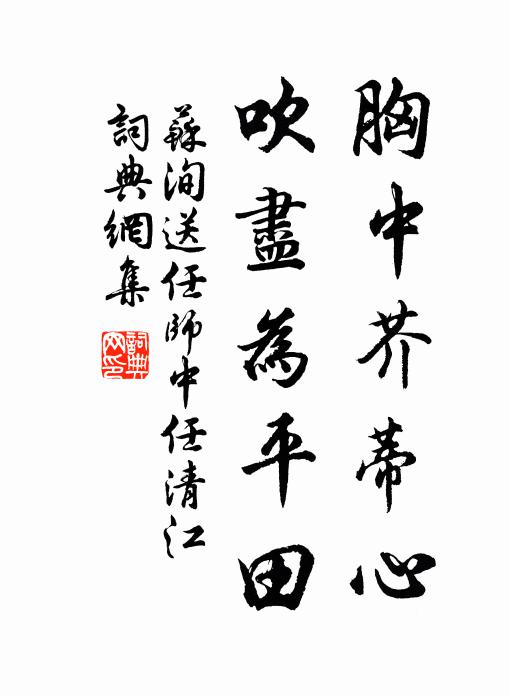 胸中芥蒂心
吹盡為平田
蘇洵送任師中任清江
詞典網集
詞典
网印